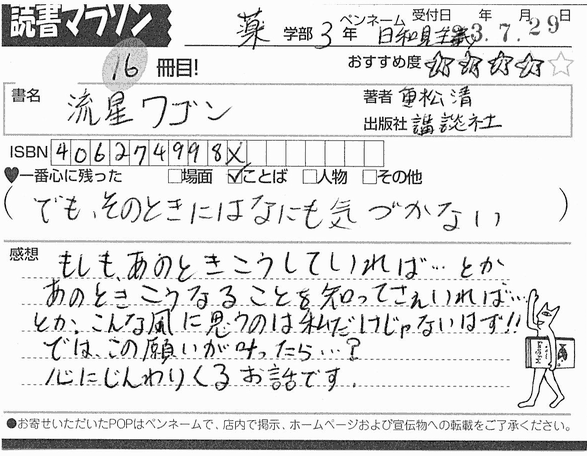 読書マラソン
薬 学部 3 年 ペンネーム 日和見主義 受付日 23.年7.月29日
16 冊目!
おすすめ度 ☆☆☆☆☆
書名 流星ワゴン
著者 重松清
出版社 講談社
ISBN 406274998X
♥一番心に残った □場面 ☑ことば □人物 □その他
(でも、そのときにはなにも気づかない)
感想
もしも、あのときこうしていれば…とか
あのときこうなることを知ってさえいれば…
とか、こんな風に思うのは私だけじゃないはず!!
では、この願いが叶ったら…?
心にじんわりくるお話です。
●お寄せいただいたPOPはペンネームで、店内で掲示、ホームページおよび宣伝物への転載をご了承ください。